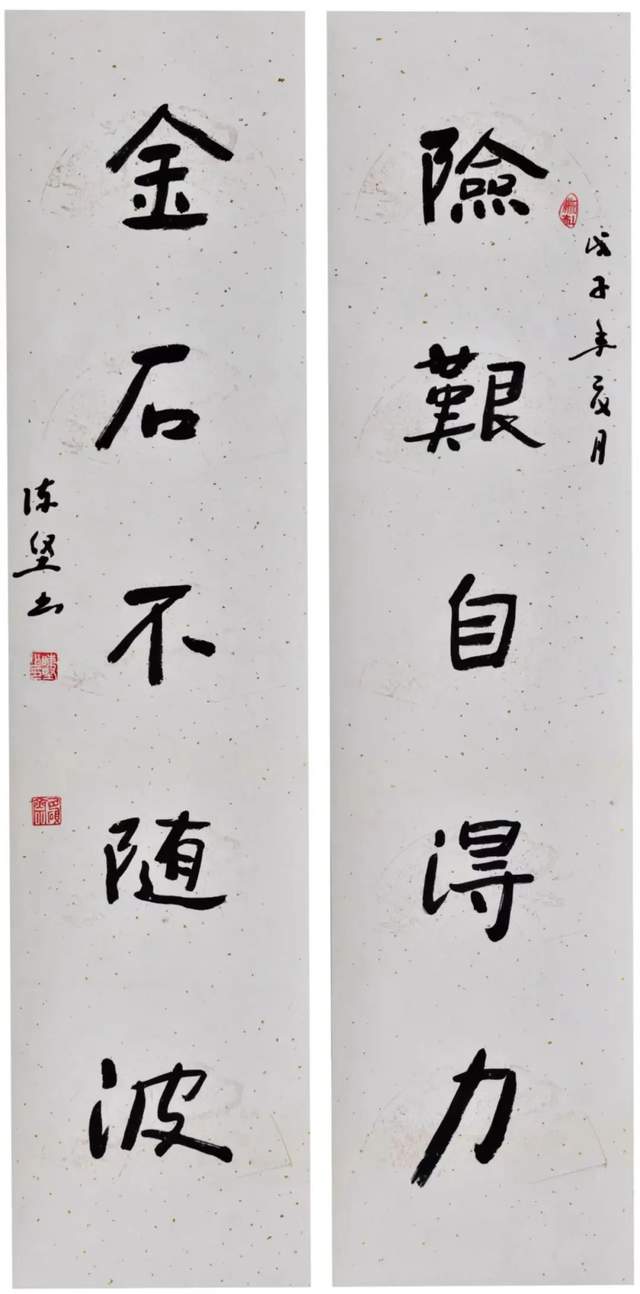 險艱自得力
戊子年
金石不随波
陈坚书